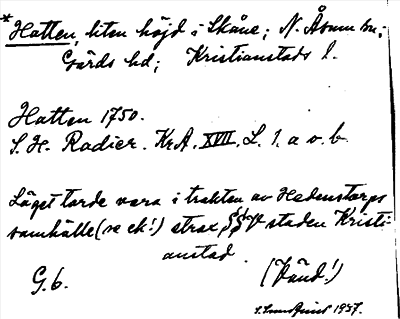 * Hatten, liten höjd i Skåne; N. Åsum sn;
Gärds hd; Kristianstads l.
Hatten 1750.
S. H. Radier. KrA. XVII. L. 1. a o. b.
Läget torde vara i trakten av Hedentorps
samhälle (se ek!) strax V staden Kristi-
anstad.
G. b. (Vänd!)
1937.